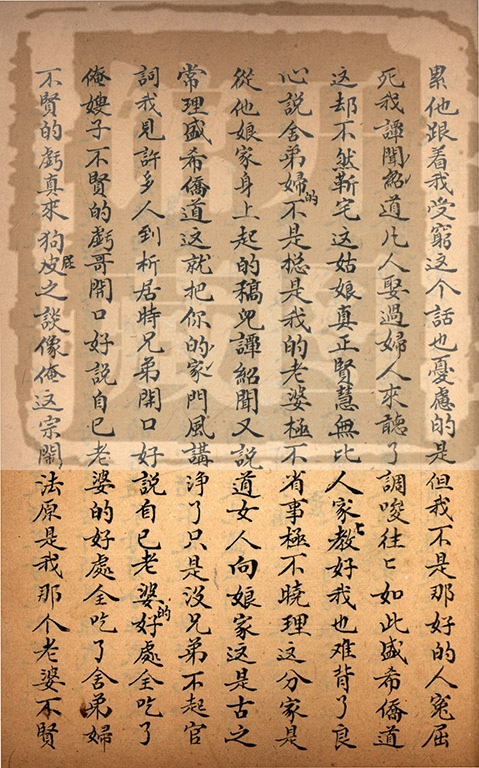 累他跟着我受窮这个話也憂慮的是但我不是那好的人寃屈
死我譚聞紹道凡人娶過婦人來聽了調唆往〻如此盛希僑道
这却不然靳宅这姑娘真正賢慧無比人家教好我也难背了良
心説舍弟婦的不是揔是我的老婆極不省事極不曉理这分家是
從他娘家身上起的稿児譚紹聞又説道女人向娘家这是古之
常理盛希僑道这就把你的家門風講淨了只是没兄弟不起官
詞我見許多人到析居時兄弟開口好説自己老婆的好處全吃了
俺嫂子不賢的虧哥開口好説自己老婆的好處全吃了舍弟婦
不賢的虧真來狗皮屁之談像俺这宗鬧法原是我那个老婆不賢